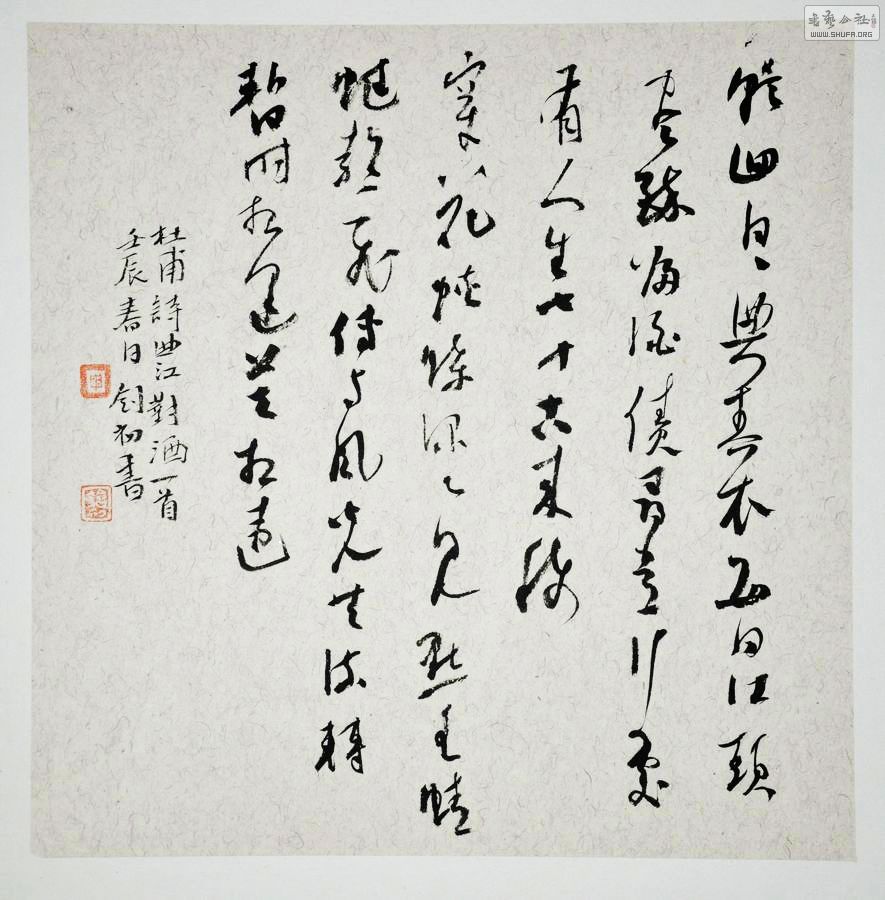 書藝公社
WWW.SHUFA.ORG
朝回日日典春衣每日江頭
盡醉歸酒債尋常行處
有人生七十古來稀
穿花蛺蝶深々見點水蜻
蜓款々飛傳与風光共流轉
暫時相賞莫相違
杜甫詩曲江對酒一首
壬辰春日釗初書